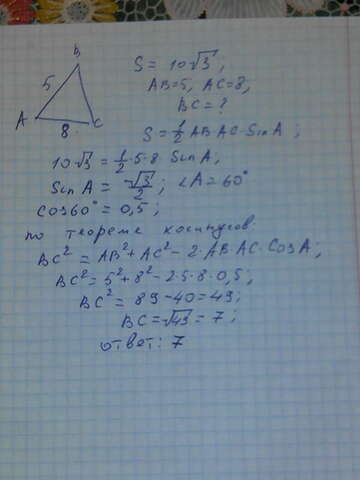 B
5
A
8
C
S = 10√3;
AB=5, AC=8,
BC=?
S = 1/2 AB·AC·Sin A;
10√3 = 1/2·5·8·Sin A,
Sin A = √3/2; ∠A=60°
cos60° = 0,5;
по теореме косинусов:
BC² = AB² + AC² - 2·AB·AC·CosA;
BC² = 5² + 8² - 2·5·8·0,5;
BC² = 89 - 40 = 49;
BC = √49 = 7;
ответ: 7